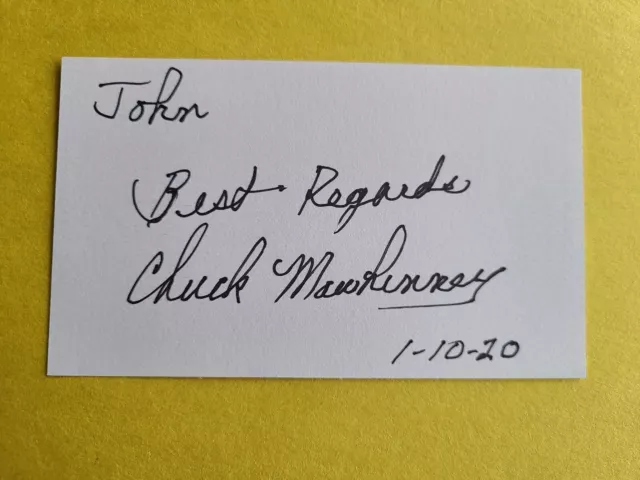 John
Best Regards
Chuck Mawhinney
1-10-20